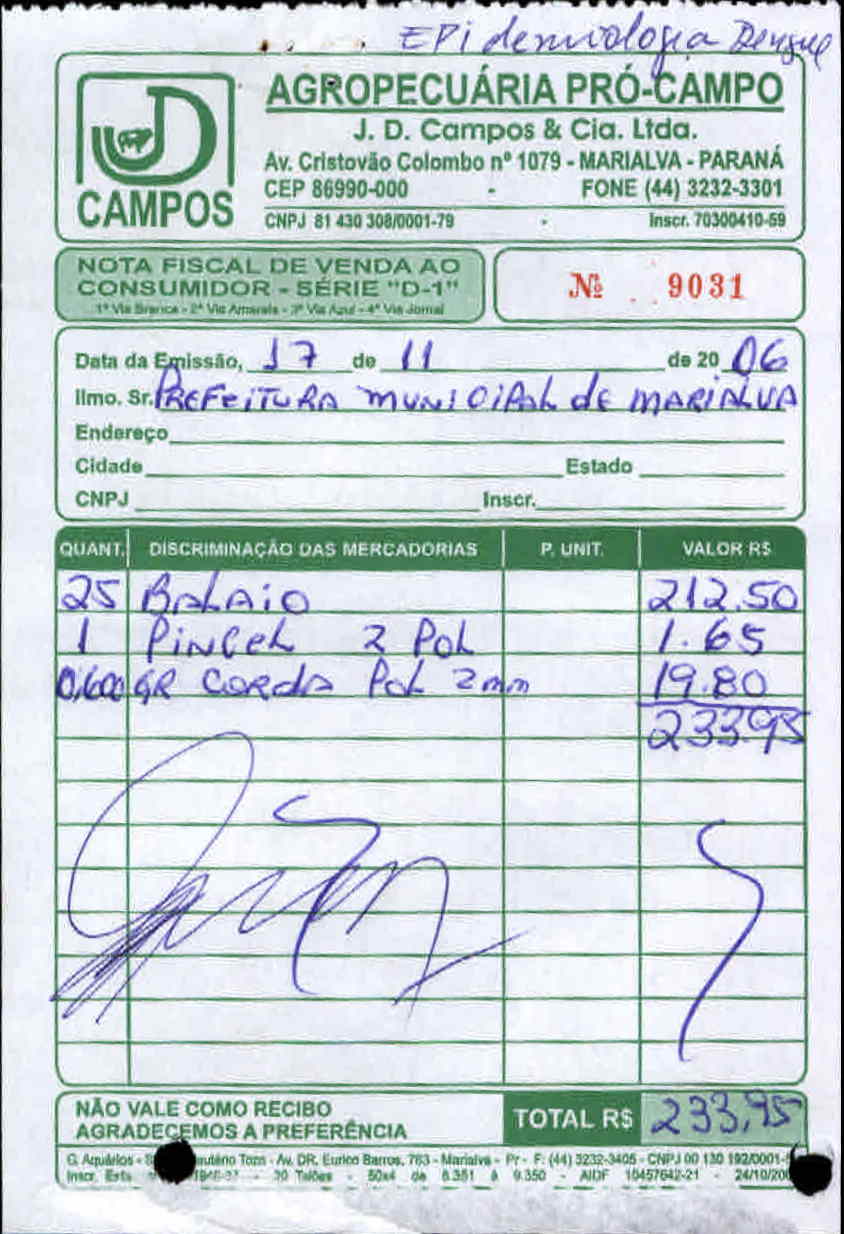 EPidemiologia Dengue
AGROPECUÁRIA PRÓ-CAMPO
J. D. Campos & Cia. Ltda.
Av. Cristovão Colombo nº 1079 - MARIALVA - PARANÁ
CEP 86990-000 - FONE (44) 3232-3301
CNPJ 81 430 308/0001-79 - Inscr. 70300410-59
JD
CAMPOS
NOTA FISCAL DE VENDA AO
CONSUMIDOR - SÉRIE "D-1"
1ª Via Branca - 2ª Via Amarela - 3ª Via Azul - 4ª Via Jornal
Nº 9031
Data da Emissão, 17 de 11 de 2006
Ilmo. Sr. PREFEITURA MUNICIPAL de MARIALVA
Endereço
Cidade Estado
CNPJ Inscr.
QUANT. DISCRIMINAÇÃO DAS MERCADORIAS P. UNIT. VALOR R$
25 BALAiO 212.50
1 PiNCEL 2 POL 1.65
0,600 GR CORDA Pol 2mm 19.80
233.95
NÃO VALE COMO RECIBO
AGRADECEMOS A PREFERÊNCIA
TOTAL R$ 233,95
G. Aquários - Av. DR. Eurico Barros, 763 - Marialva - Pr - F: (44) 3232-3405 - CNPJ 00 130 192/0001-
Inscr. Est. - 20 Talões - 50x4 de 8.351 à 9.350 - AIDF 10457642-21 - 24/10/20